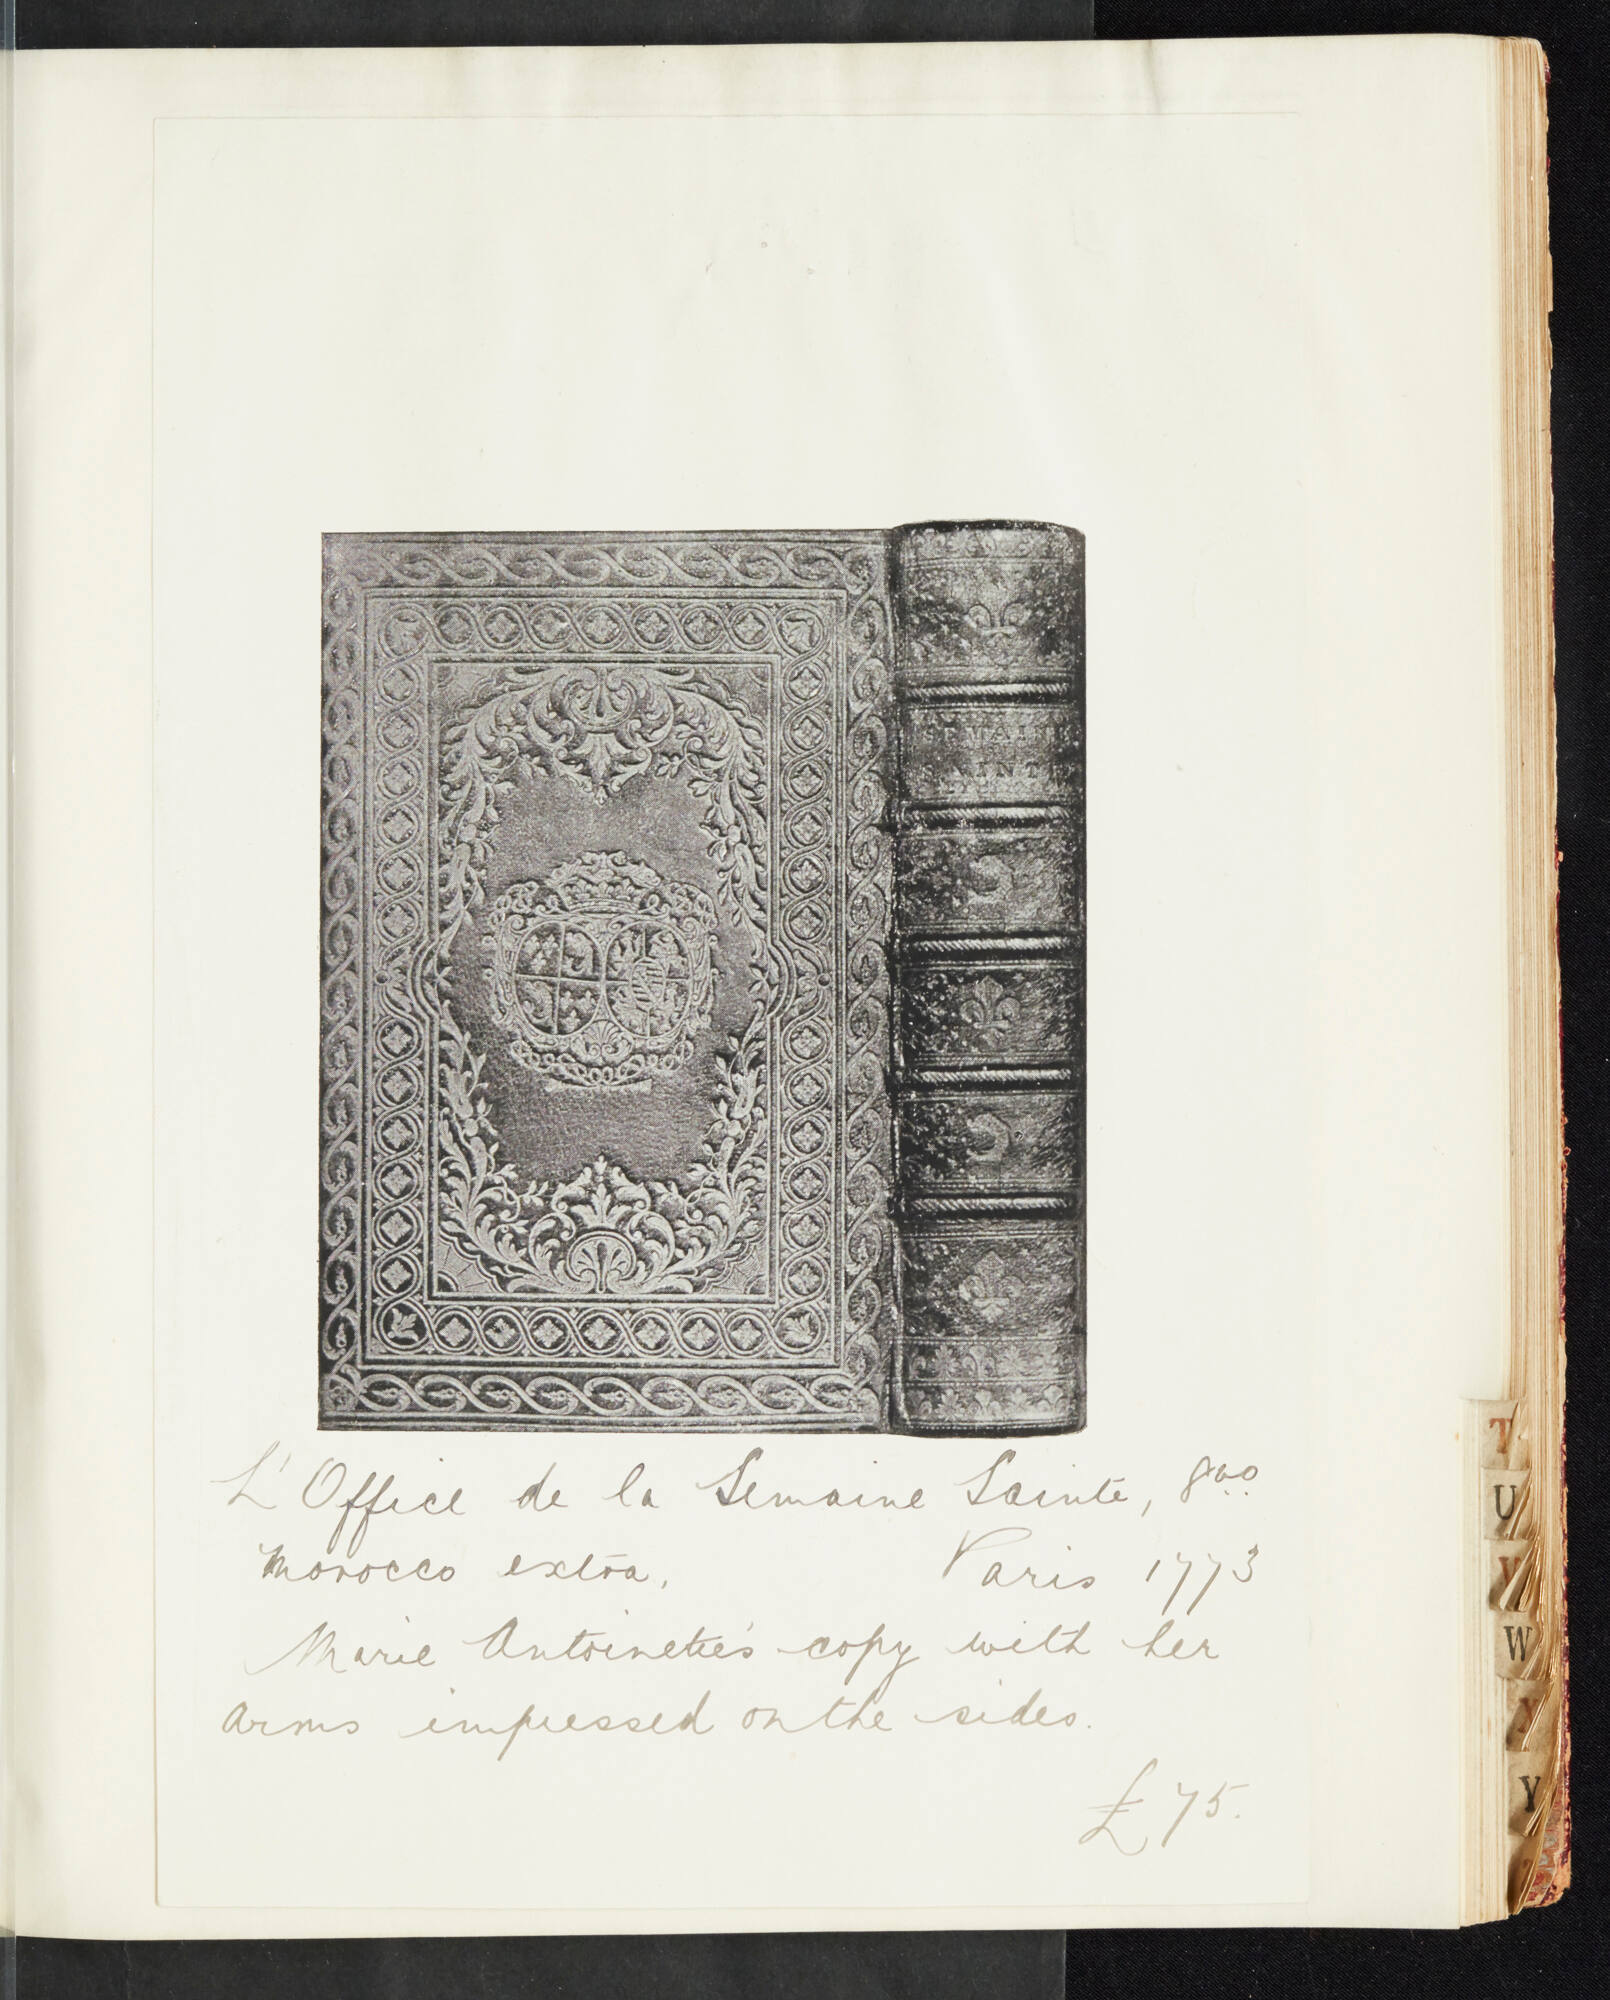 SEMAINE
SAINTE
L'Office de la Semaine Sainte, 8vo.
morocco extra. Paris 1773
Marie Antoinette's copy with her
arms impressed on the sides.
£75.
T
U
V
W
X
Y